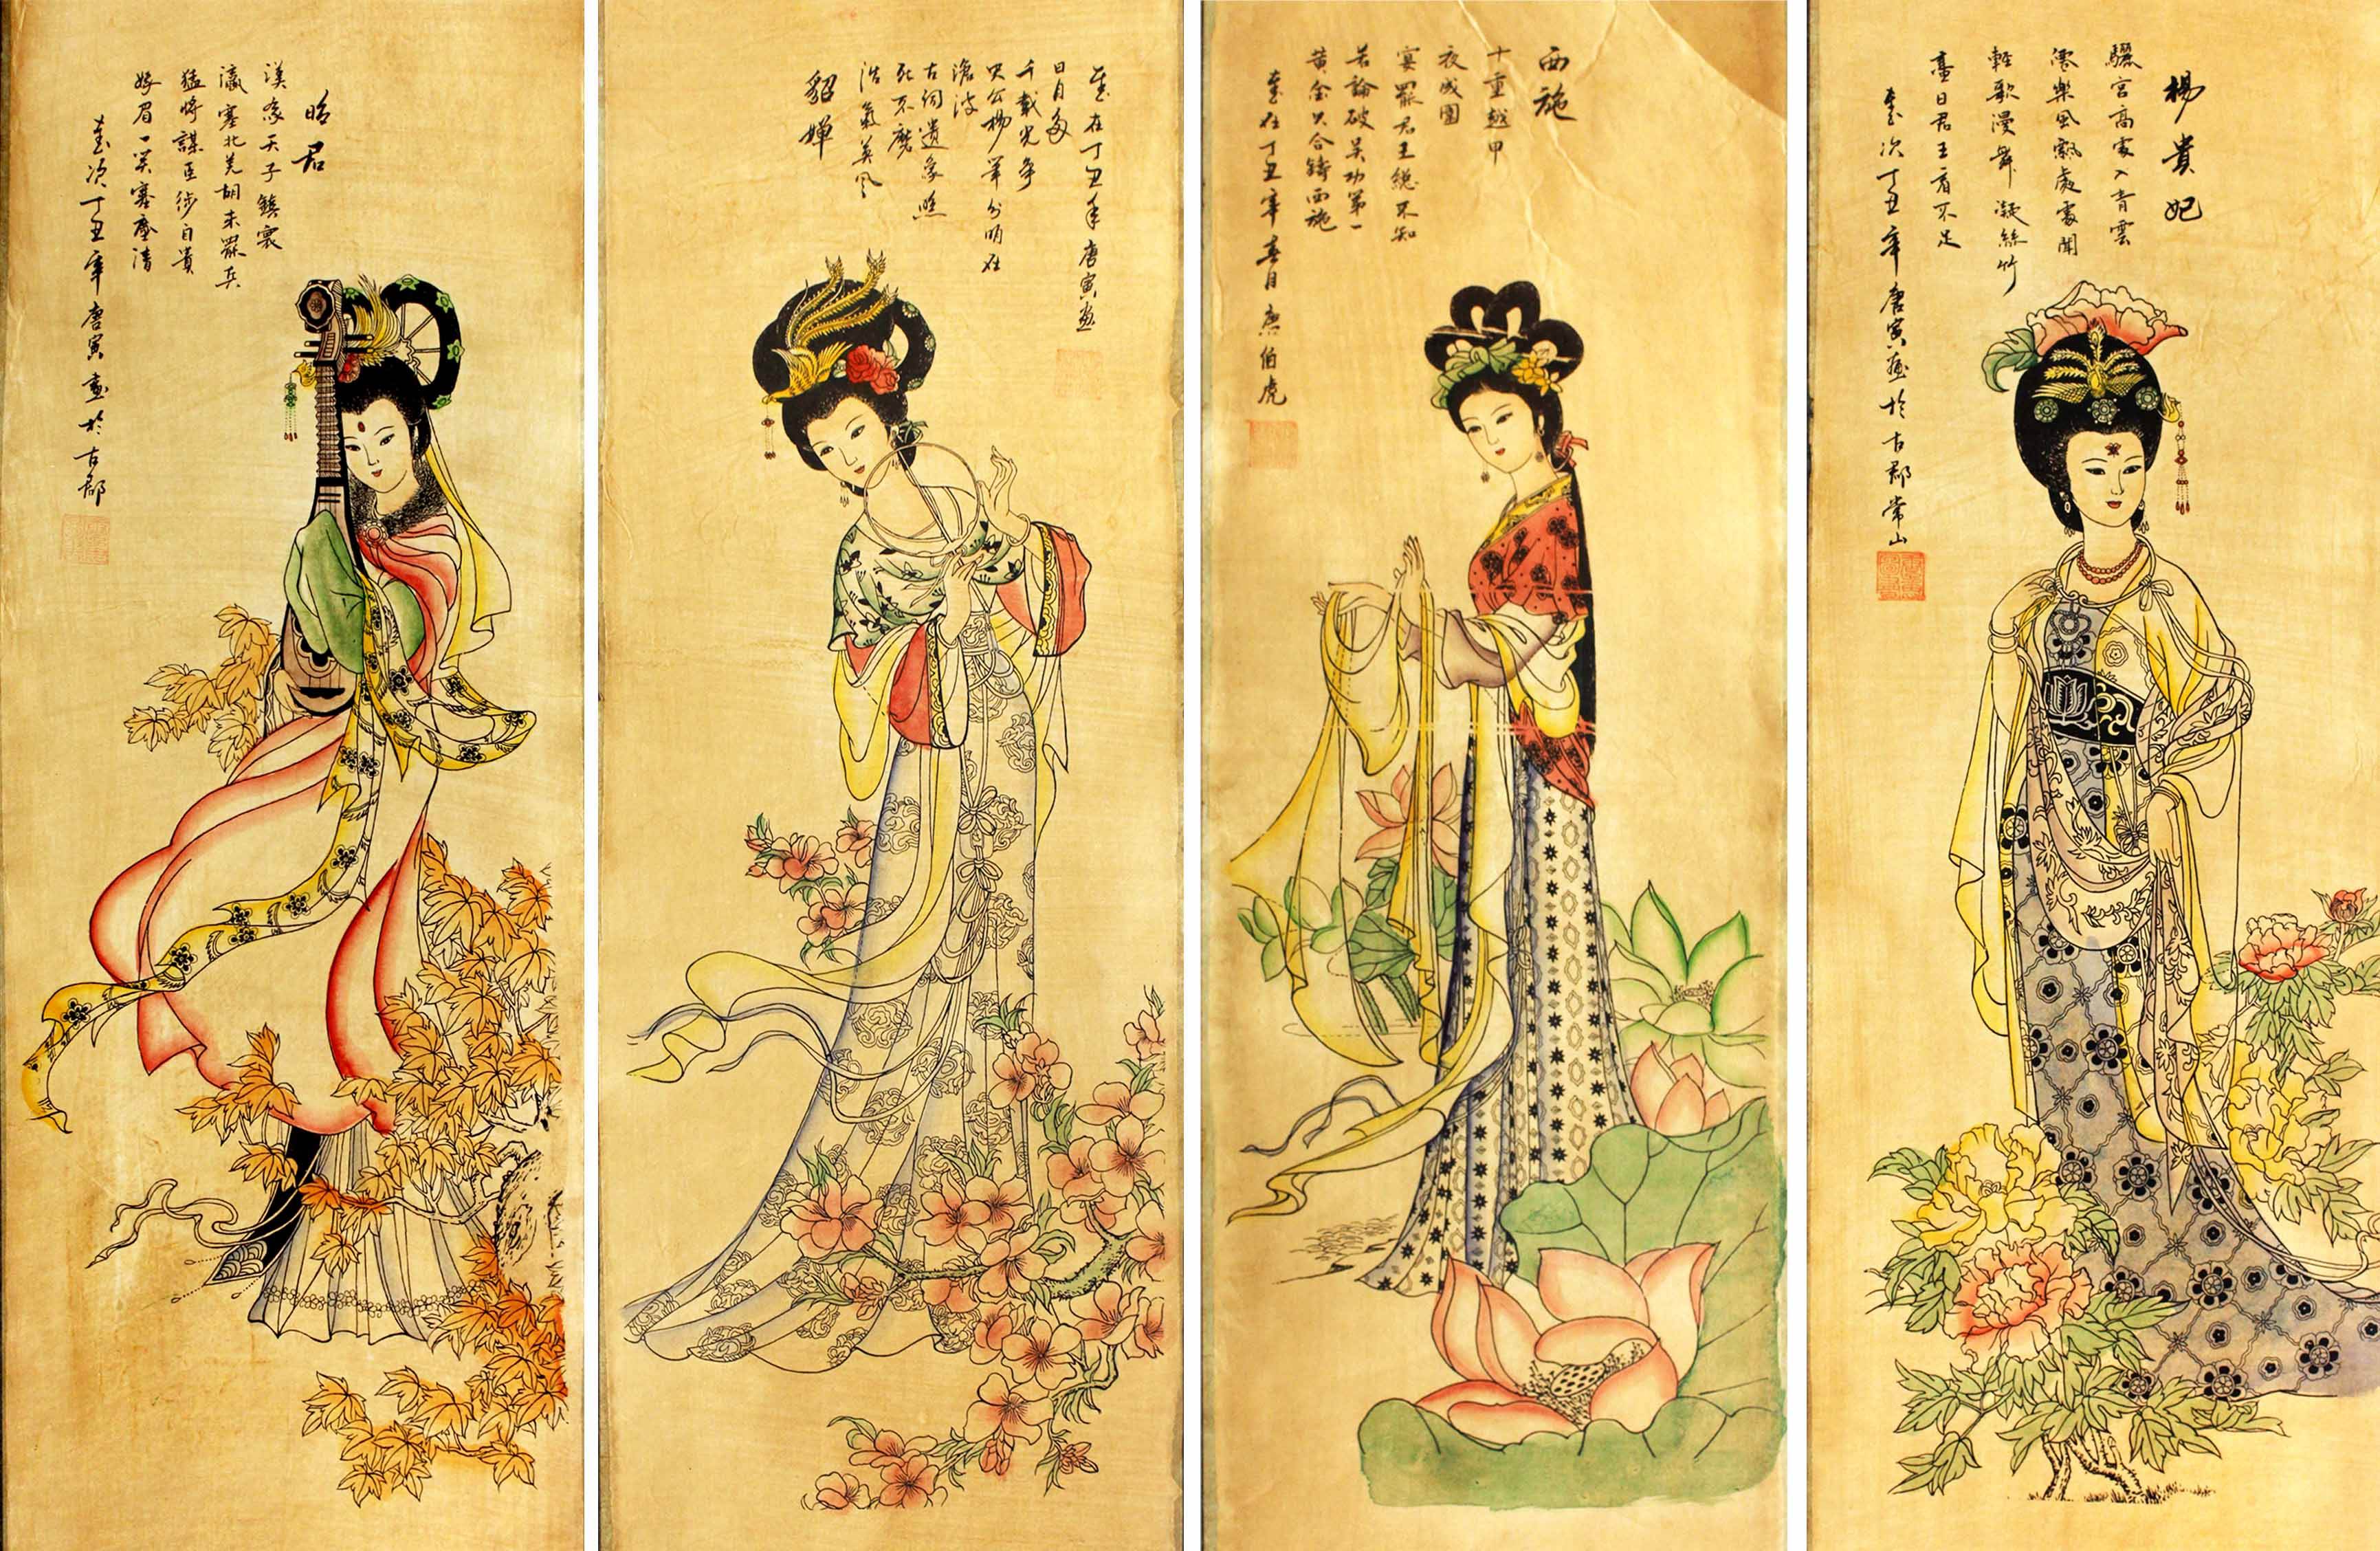 昭君
漢家天子鎮寰
瀛塞北羌胡未罷兵
猛將謀臣徒自貴
娥眉一笑塞塵清
歲次丁丑年唐寅畫於古郡
貂嬋
浩氣英風
死不磨
古伺遺象照
滄波
筆分明在
千載光爭
日月多
歲在丁丑年唐寅畫
西施
十重越甲
夜成圍
宴罷君王總不知
若論破吴功第一
黄金只合鑄西施
歲在丁丑年春月唐伯虎
楊貴妃
驪宮高處入青雲
僊樂風飄處處聞
輕歌漫舞凝絲竹
盡日君王看不足
歲次丁丑年唐寅畫於古郡常山